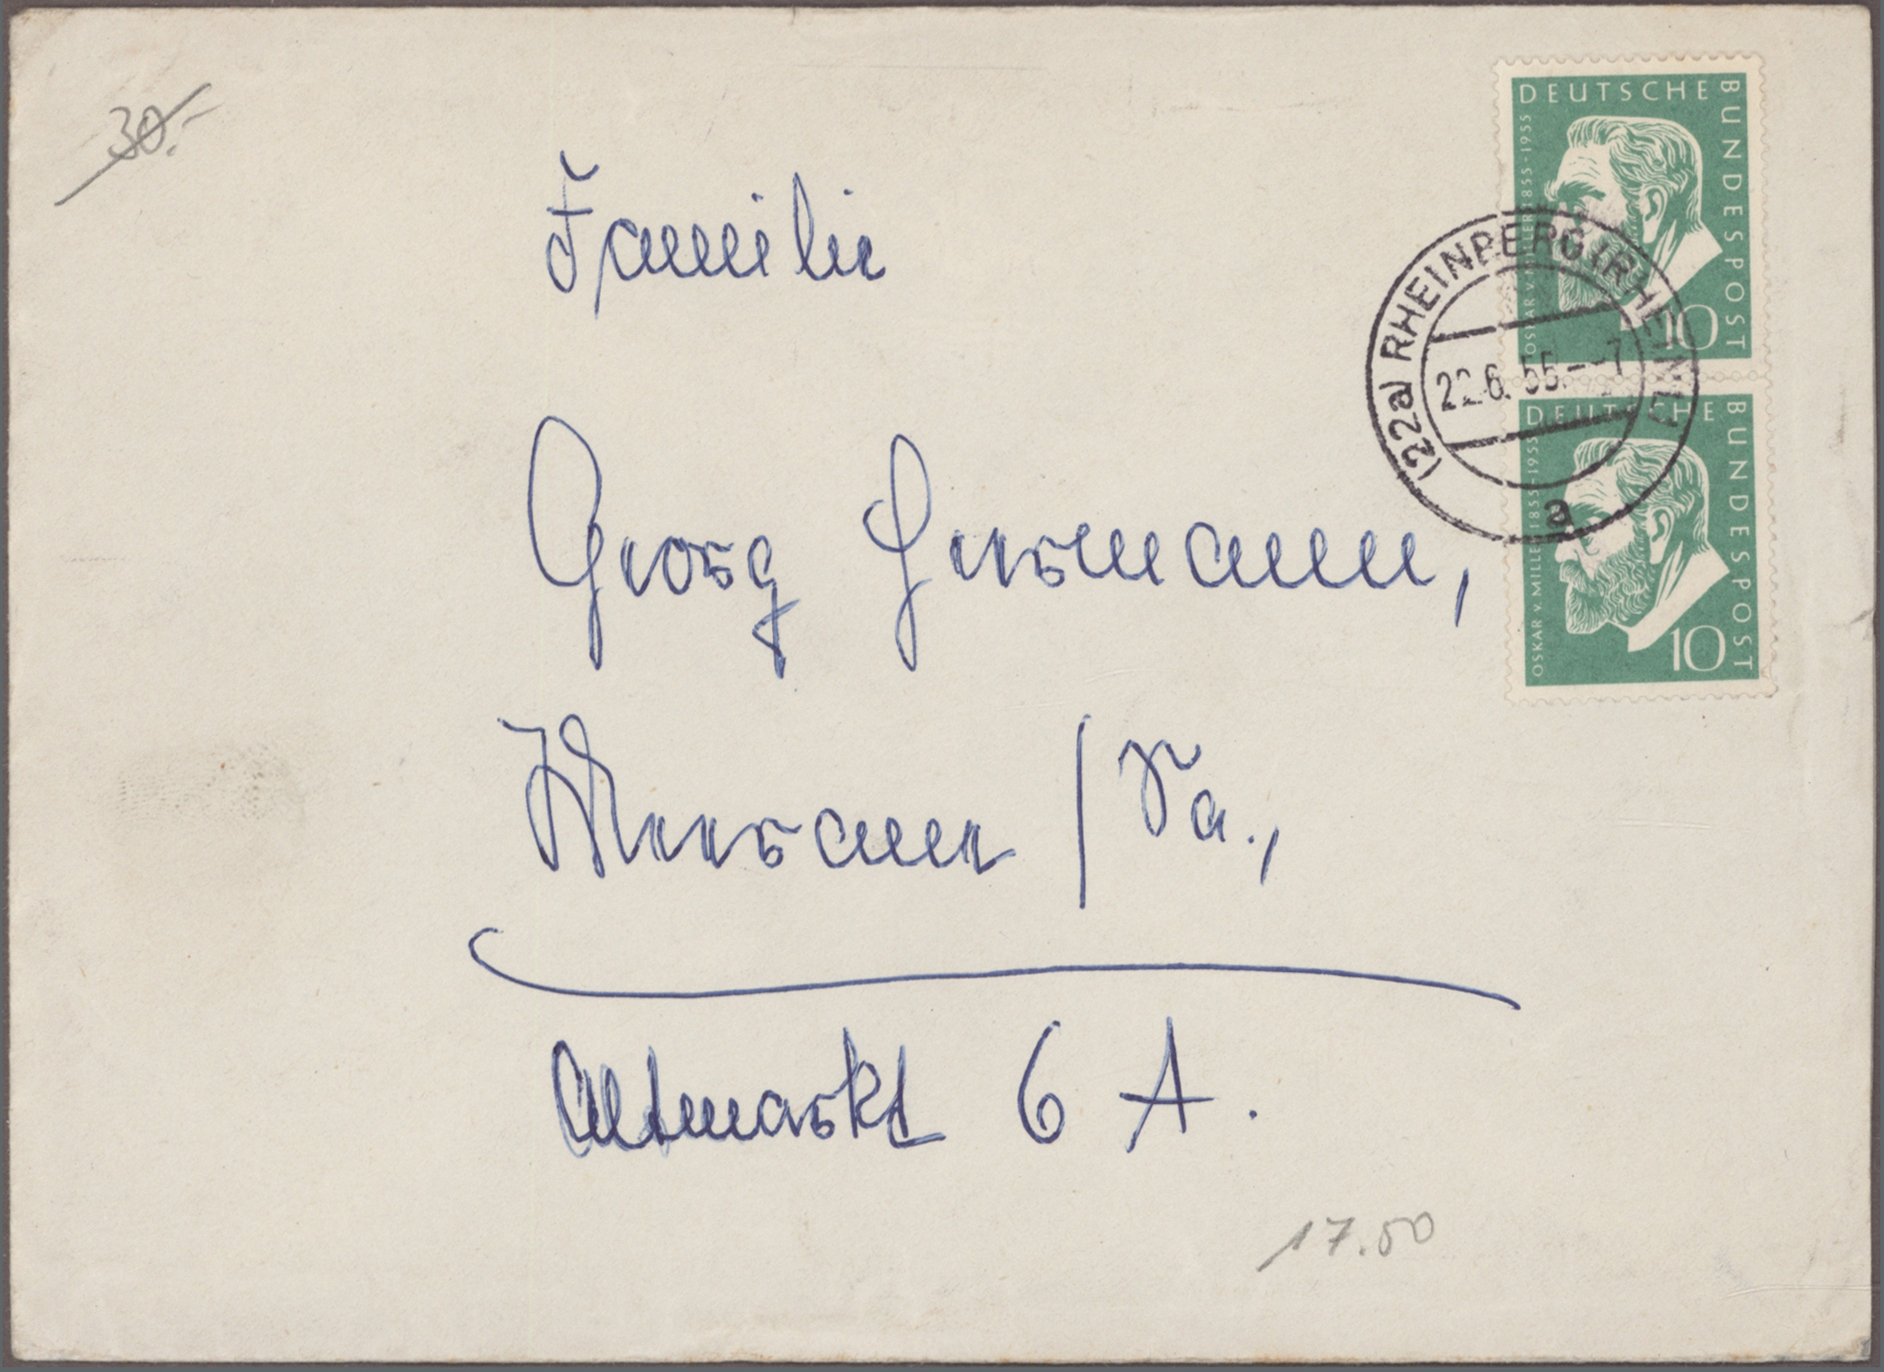 30.-
DEUTSCHE BUNDESPOST
OSKAR v. MILLER 1855-1955
10
(22a) RHEINBERG (RHEINL)
22.6.55.--7
a
DEUTSCHE BUNDESPOST
OSKAR v. MILLER 1855-1955
10
Familie
Georg Hermann,
Meerane / Sa.,
Altmarkt 6 A.
17.50